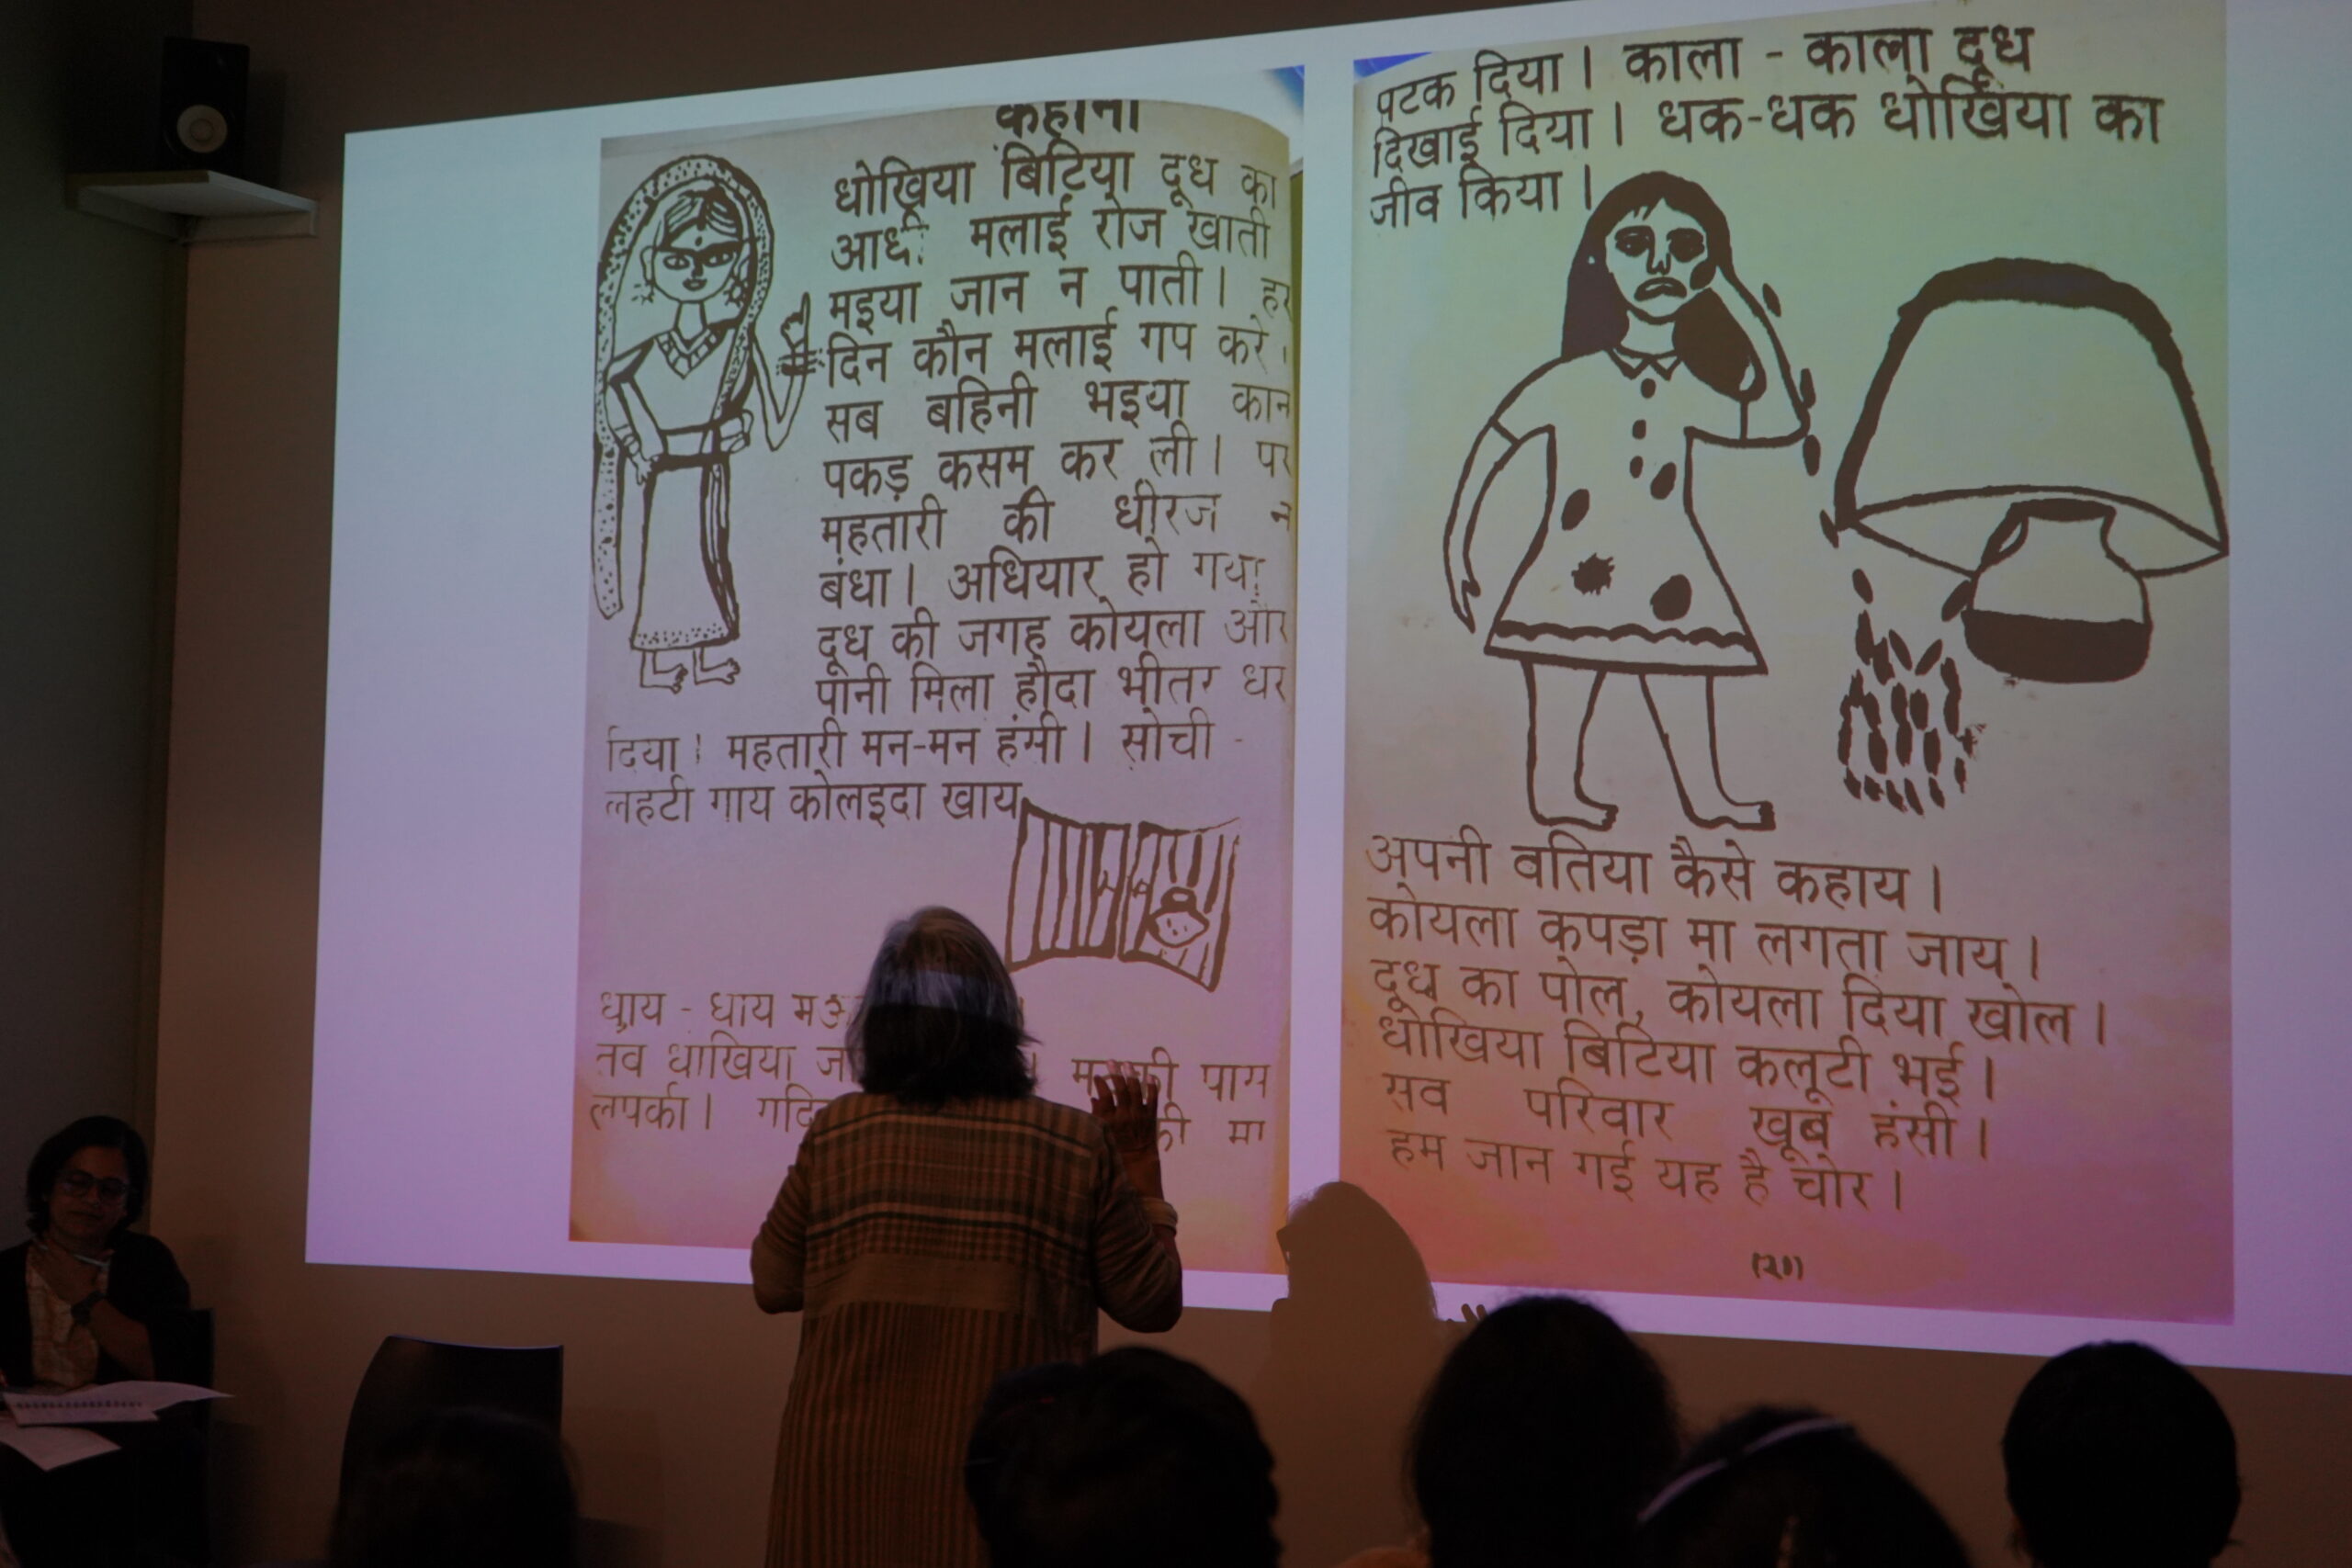 कहानी
धोखिया बिटिया दूध का
आधी मलाई रोज खाती
मइया जान न पाती। हर
दिन कौन मलाई गप करे।
सब बहिनी भइया कान
पकड़ कसम कर ली। पर
महतारी की धीरज न
बंधा। अधियार हो गया
दूध की जगह कोयला और
पानी मिला हौदा भीतर धर
दिया। महतारी मन-मन हंसी। सोची -
लहटी गाय कोलइदा खाय
धाय - धाय
तव धोखिया पास
लपकी। की मा
पटक दिया। काला - काला दूध
दिखाई दिया। धक-धक धोखिया का
जीव किया।
अपनी वतिया कैसे कहाय।
कोयला कपड़ा मा लगता जाय।
दूध का पोल, कोयला दिया खोल।
धोखिया बिटिया कलूटी भई।
सव परिवार खूब हंसी।
हम जान गई यह है चोर।